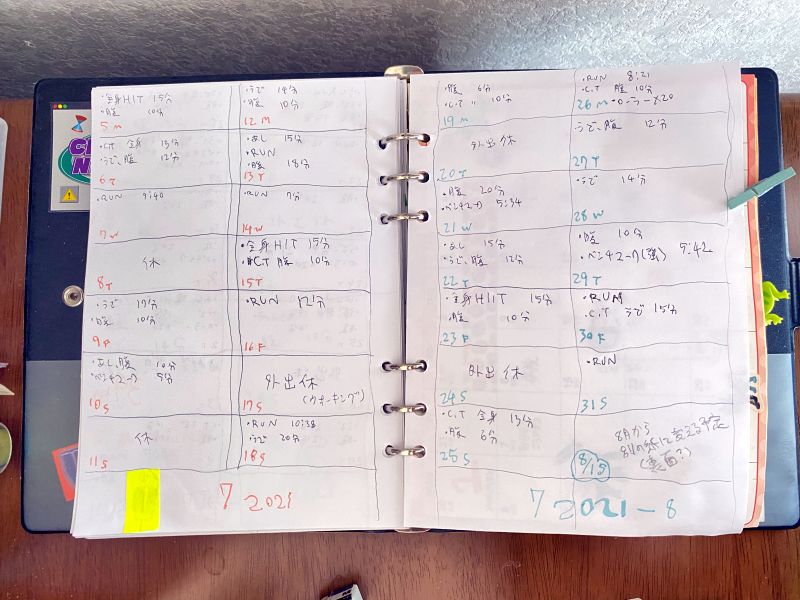 ・全身HIT 15分
・腹 10分
5 M
・C.T 全身 15分
・うで、腹 12分
6 T
・RUN 9:40
7 W
休
8 T
・うで 17分
・腹 10分
9 F
・あし、腹 10分
・ベンチ2-ク 5分
10 S
休
11 S
・うで 14分
・腹 10分
12 M
・あし 15分
・RUN
・腹 18分
13 T
・RUN 7分
14 W
・全身HIT 15分
・C.T 腹 10分
15 T
・RUN 12分
16 F
外出休
(ウォーキング)
17 S
・RUN 10:38
・うで 20分
18 S
7 2021
・腹 6分
・C.T 〃 10分
19 M
外出休
20 T
・腹 20分
・ベンチ2-ク 5:34
21 W
・あし 15分
・うで、腹 12分
22 T
・全身HIIT 15分
・腹 10分
23 F
外出休
24 S
・C.T 全身 13分
・腹 6分
25 S
・RUN 8:21
・C.T 腹 10分
26 M ・ローラー×20
うで、腹 12分
27 T
・うで 14分
28 W
・腹 10分
・ベンチ2-ク(強) 5:42
29 T
・RUN
・C.T うで 15分
30 F
・RUN
31 S
8/1 S
8月から
紙に変える予定
(裏面?)
7 2021-8